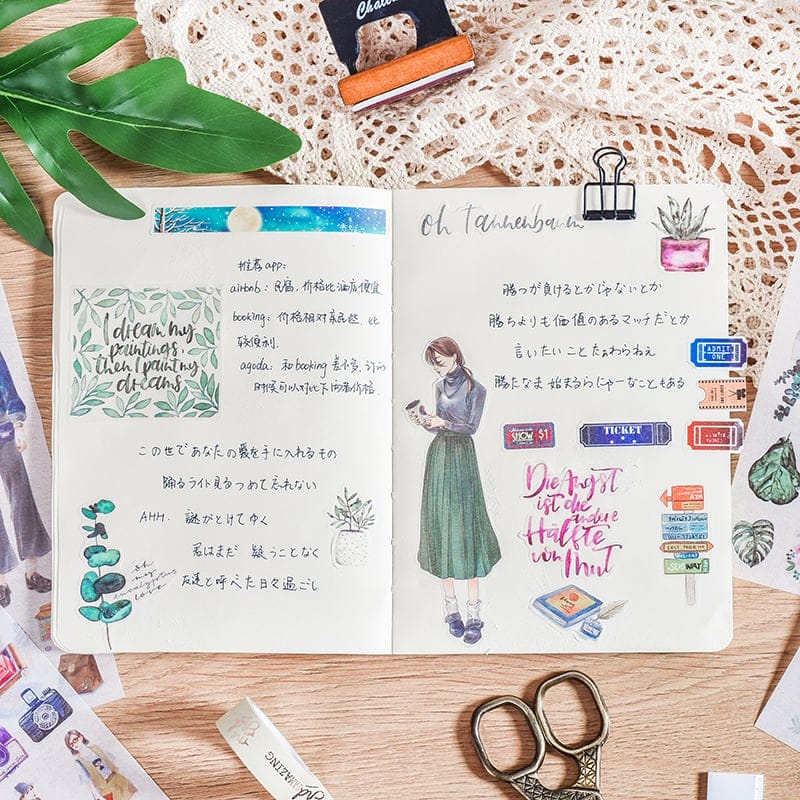 推荐app:
airbnb: 民宿,价格比酒店便宜
booking: 价格相对亲民些,比
较便利.
agoda: 和booking差不多,订的
时候可以对比下两者价格.
I dream my
paintings,
then I paint my
dreams
この世であなたの愛を手に入れるもの
踊るライト見るつめて忘れない
AHH. 謎がとけてゆく
君はまだ 疑うことなく
友達と呼べた日々過ごし
oh
my
eucalyptus
love
oh Tannenbaum
勝つが負けるとかじゃないとか
勝ちよりも価値のあるマッチだとか
言いたいことたぁわらねぇ
勝たなま 始まるらにゃーなこともある
ADMIT
ONE
SHOW
$1
TICKET
Die Angst
ist die
andere
Hälfte
von Mut
SUBWAY
AMAZING